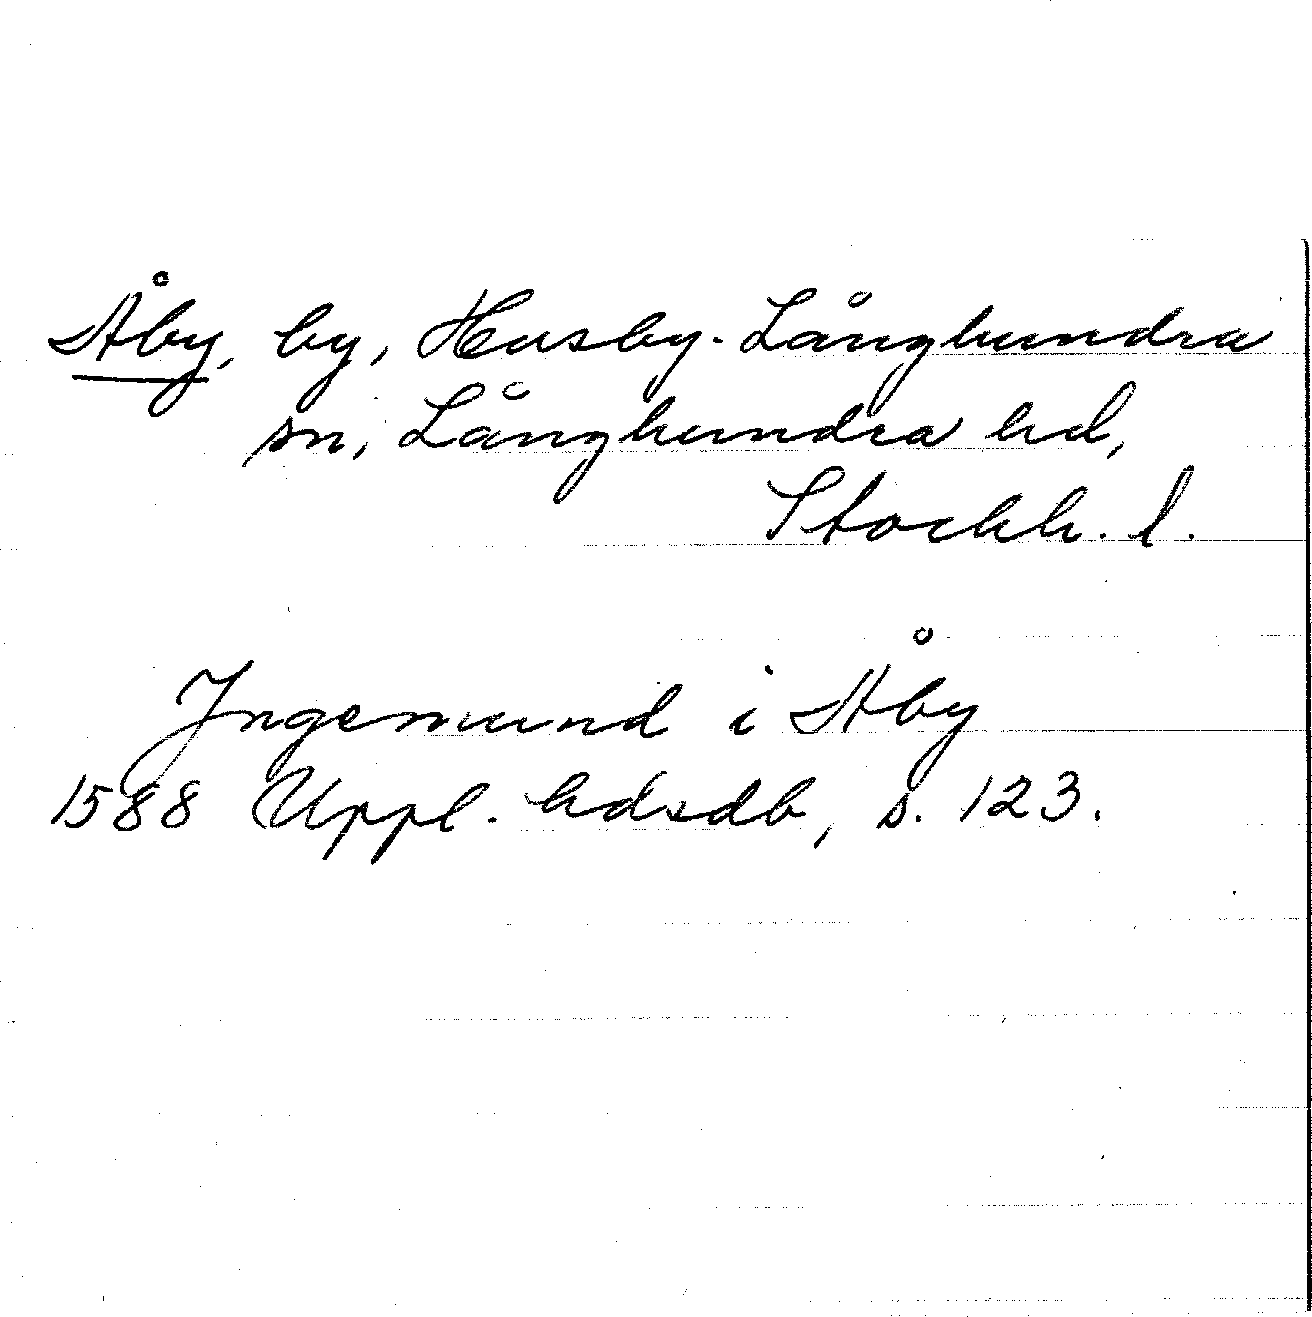 Åby, by, Husby-Långhundra
sn, Långhundra hd,
Stockh. l.
Ingemund i Åby
1588 Uppl. hdsdb, s. 123.